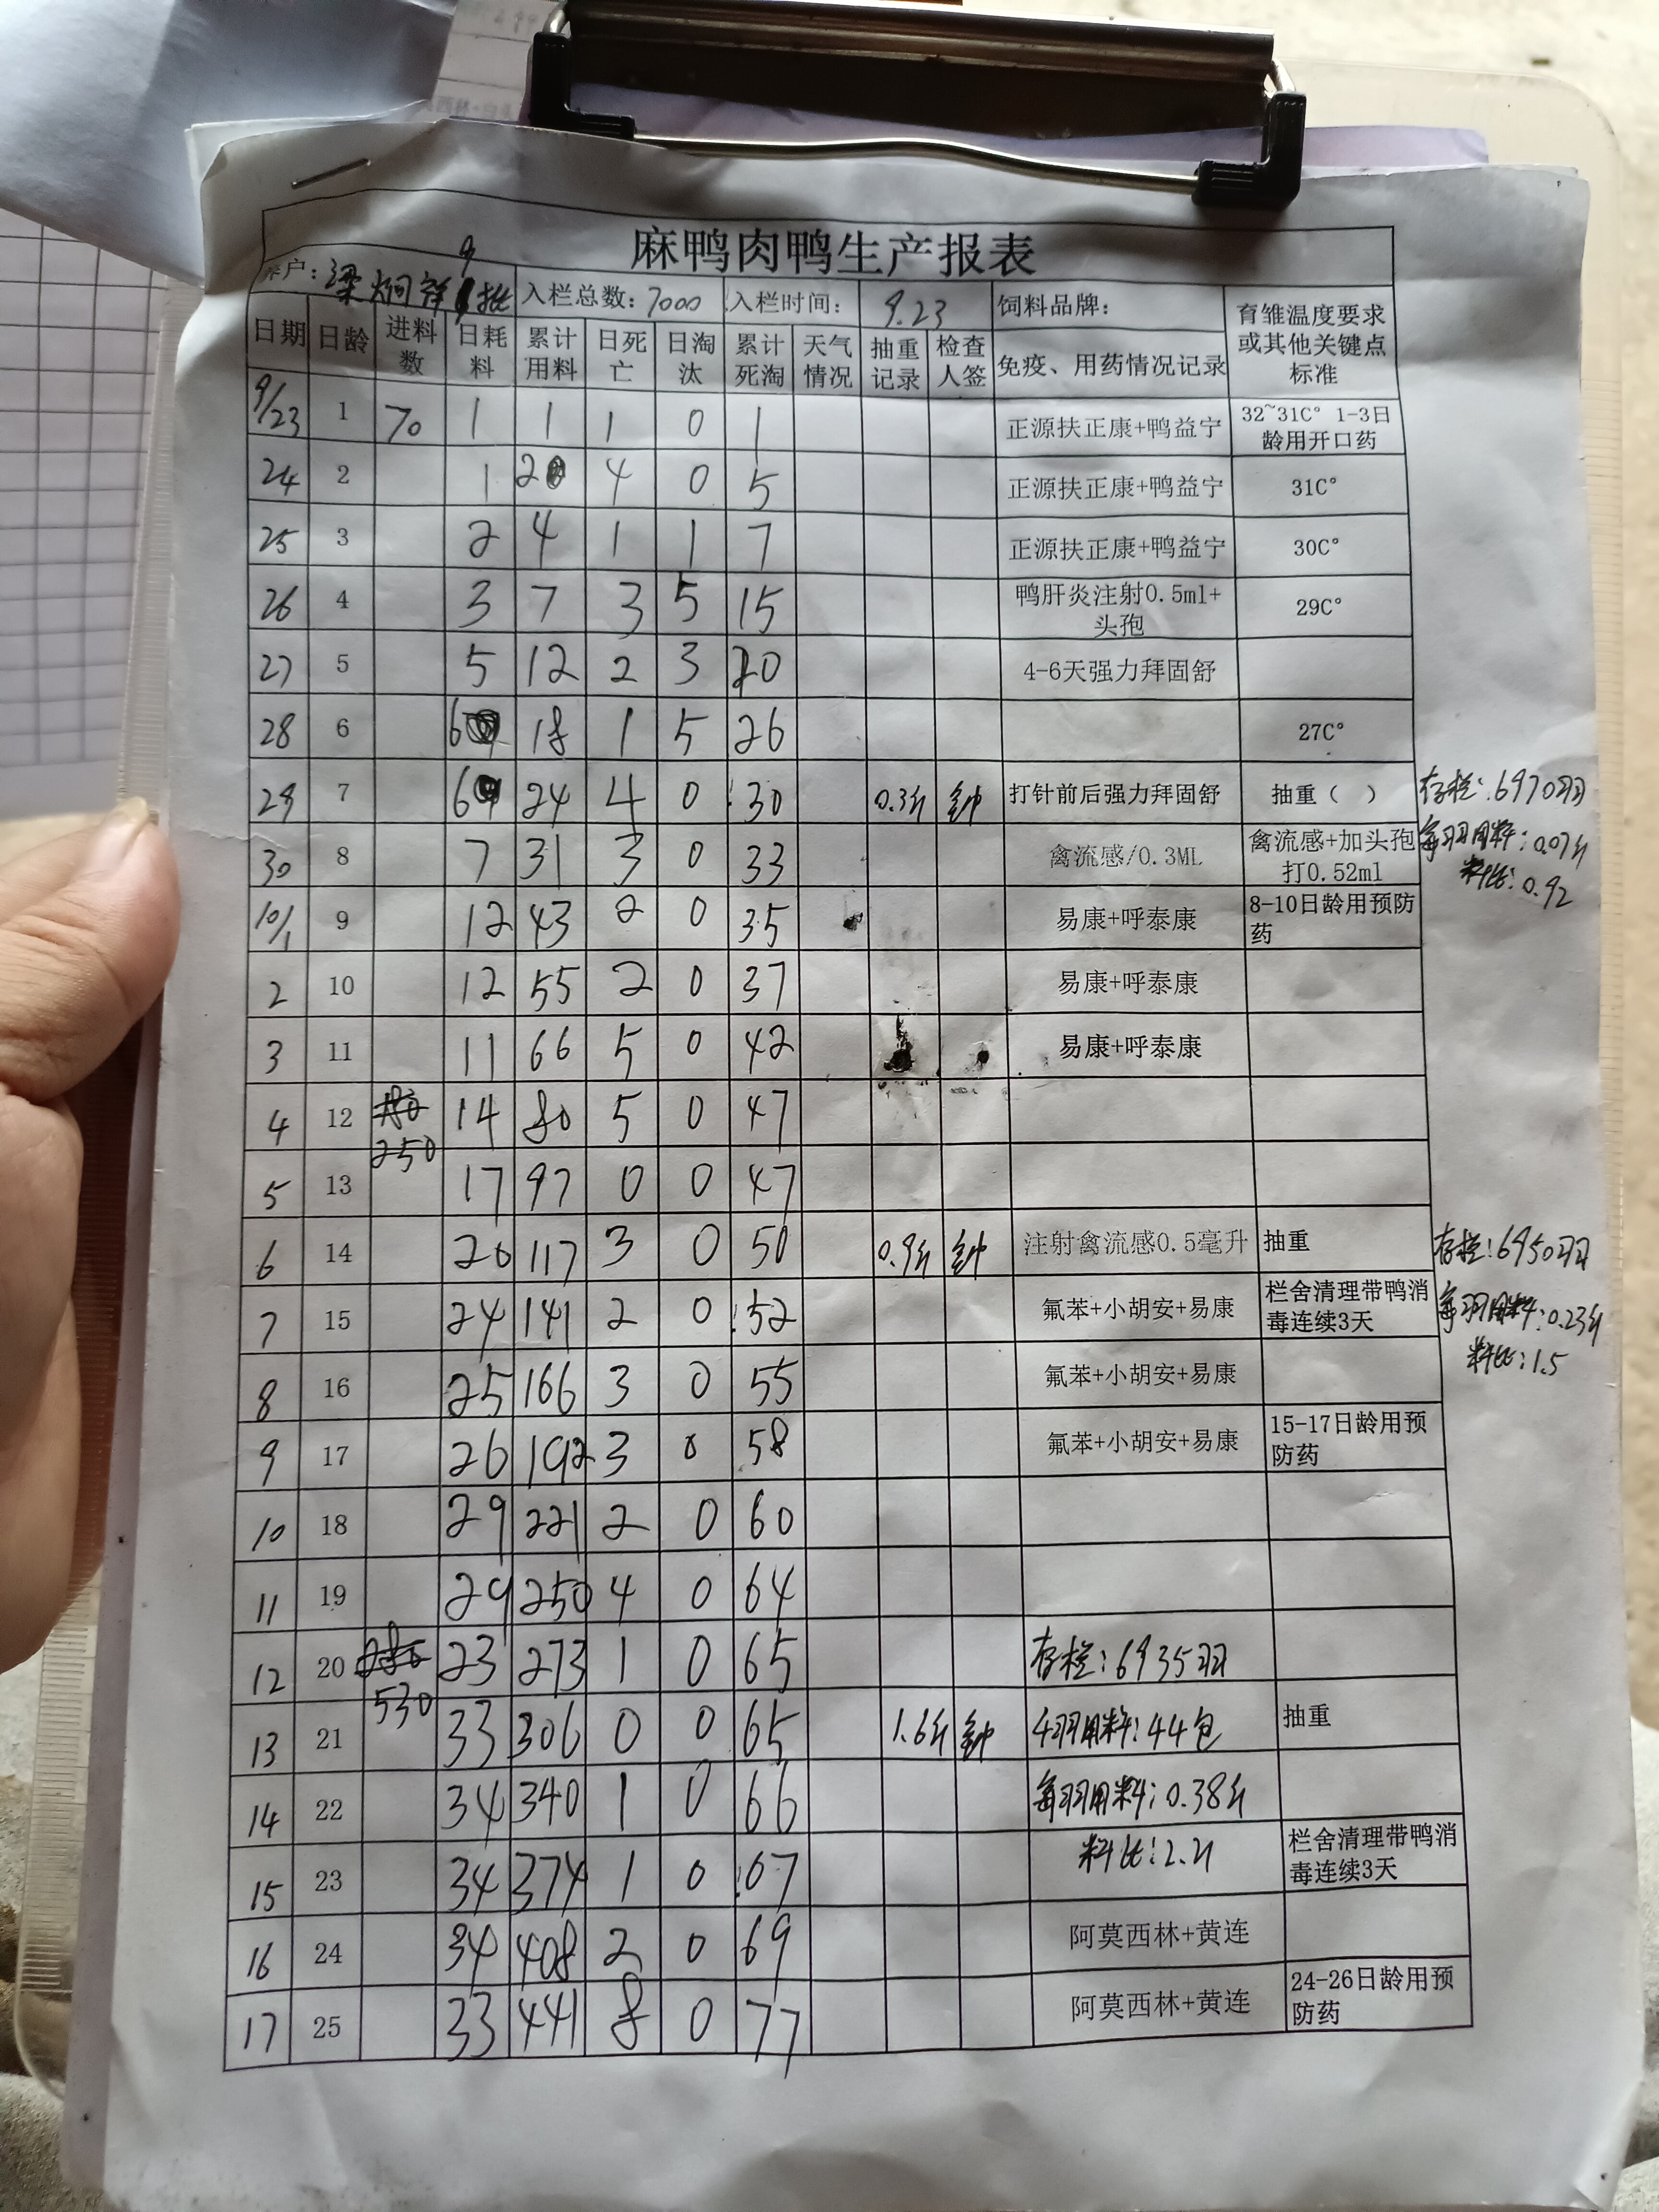 麻鸭肉鸭生产报表
养户：梁炯祥9批 入栏总数：7000 入栏时间： 9.23 饲料品牌： 育雏温度要求或其他关键点标准
日期 日龄 进料数 日耗料 累计用料 日死亡 日淘汰 累计死淘 天气情况 抽重记录 检查人签 免疫、用药情况记录
9/23 1 70 1 1 1 0 1 正源扶正康+鸭益宁 32~31C° 1-3日龄用开口药
24 2 1 2 4 0 5 正源扶正康+鸭益宁 31C°
25 3 2 4 1 1 7 正源扶正康+鸭益宁 30C°
26 4 3 7 3 5 15 鸭肝炎注射0.5ml+头孢 29C°
27 5 5 12 2 3 20 4-6天强力拜固舒
28 6 6 18 1 5 26 27C°
29 7 6 24 4 0 30 0.3斤 钟 打针前后强力拜固舒 抽重（ ） 存栏：6970羽
30 8 7 31 3 0 33 禽流感/0.3ML 禽流感+加头孢打0.52ml 每羽用料：0.07斤
料比：0.92
10/1 9 12 43 2 0 35 易康+呼泰康 8-10日龄用预防药
2 10 12 55 2 0 37 易康+呼泰康
3 11 11 66 5 0 42 易康+呼泰康
4 12 180 250 14 80 5 0 47
5 13 17 97 0 0 47
6 14 20 117 3 0 50 0.9斤 钟 注射禽流感0.5毫升 抽重 存栏：6950羽
7 15 24 141 2 0 52 氟苯+小胡安+易康 栏舍清理带鸭消毒连续3天 每羽用料：0.23斤
料比：1.5
8 16 25 166 3 0 55 氟苯+小胡安+易康
9 17 26 192 3 0 58 氟苯+小胡安+易康 15-17日龄用预防药
10 18 29 221 2 0 60
11 19 29 250 4 0 64
12 20 280 530 23 273 1 0 65 存栏：6935羽
13 21 33 306 0 0 65 1.6斤 钟 千羽用料：44包 抽重
14 22 34 340 1 0 66 每羽用料：0.38斤
15 23 34 374 1 0 67 料比：2.21 栏舍清理带鸭消毒连续3天
16 24 34 408 2 0 69 阿莫西林+黄连
17 25 33 441 8 0 77 阿莫西林+黄连 24-26日龄用预防药